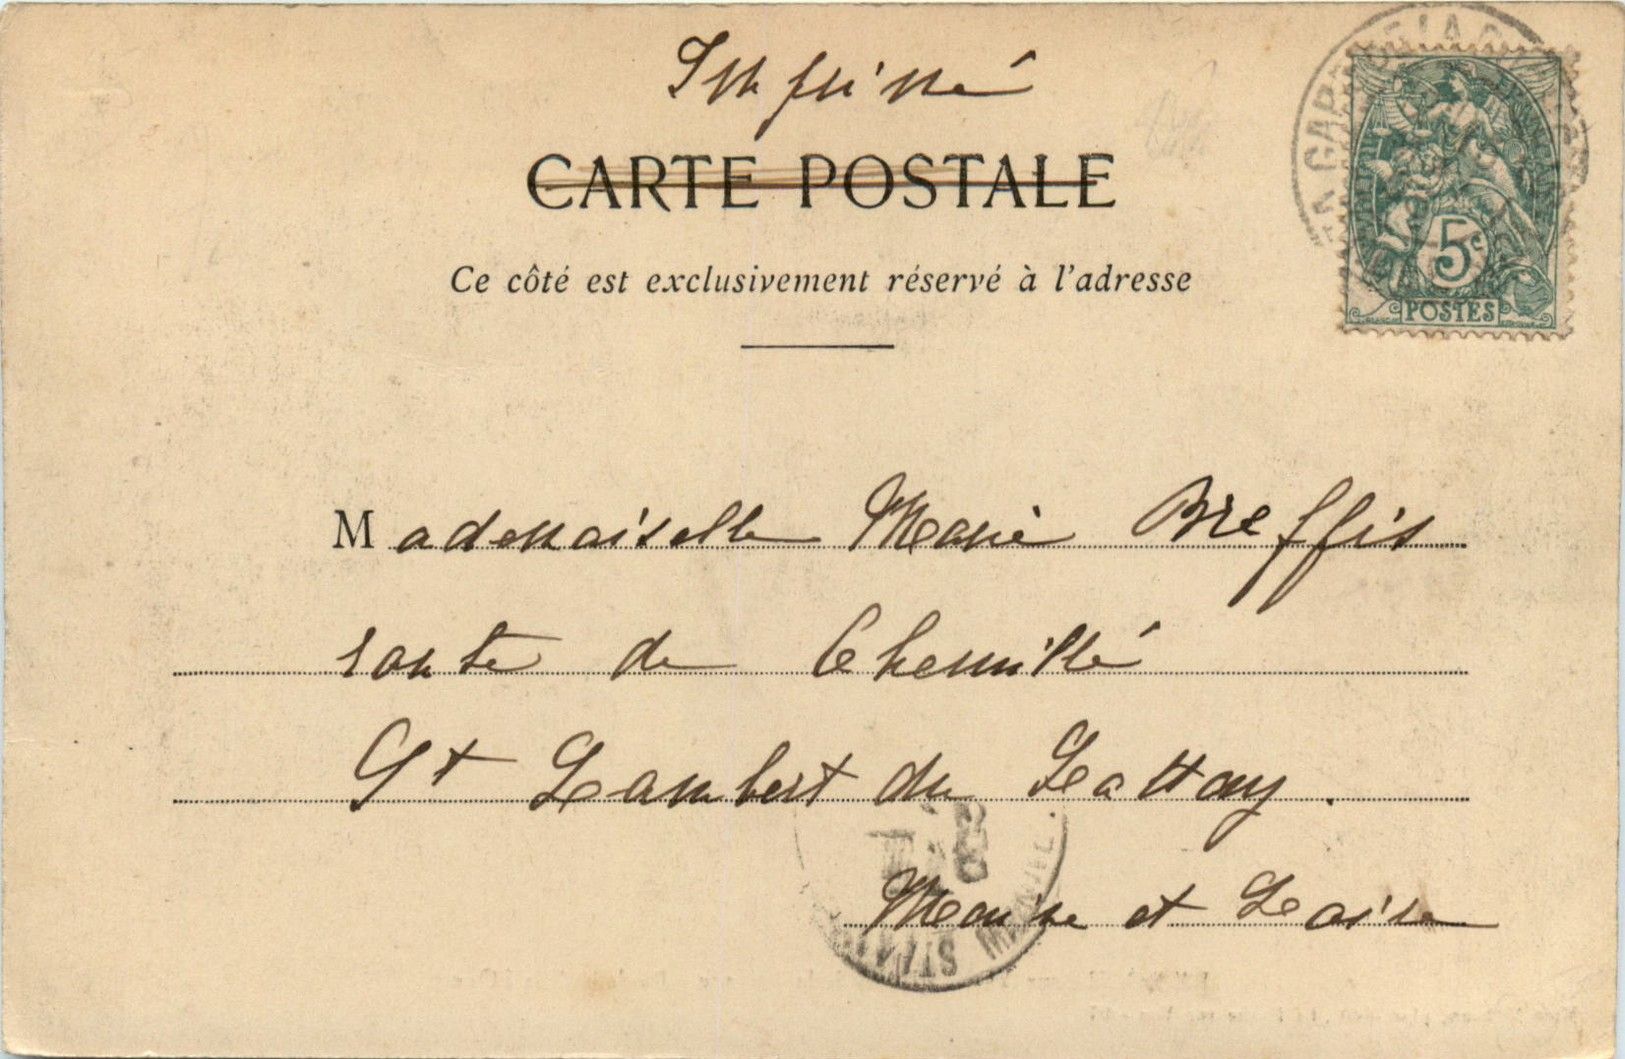 Imprimé
CARTE POSTALE
Ce côté est exclusivement réservé à l'adresse
5c
POSTES
Mademoiselle Marie Breffis
route de Chemillé
St Lambert du Lattay.
Maine et Loire